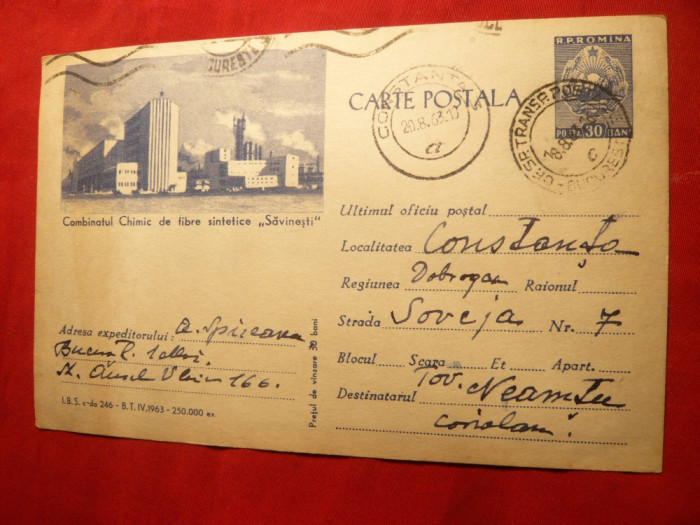 BUCUREȘTI
CONSTANȚA
20.8.63.10
a
R.P.ROMINA
POȘTA 30 BANI
CARTE POȘTALA
Combinatul Chimic de fibre sintetice „Săvinești“
Ultimul oficiu poștal
Localitatea Constanța
Regiunea Dobrogea Raionul
Strada Soveja Nr. 7
Blocul Scara Et Apart.
Destinatarul Tov. Neamțu
Coriolan
Adresa expeditorului:
Aurel Vlaicu 166.
I.B.S. c-da 246 - B.T. IV.1963 - 250.000 ex.
Prețul de vinzare 30 bani